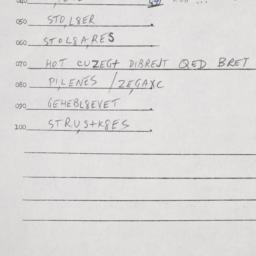 050 STO,L8ER.
060 STOL8A,RES
070 HOT CUZEG+ DIBREJT QED BRET
080 PI,LENES /ZEGAXC
090 GEHEBL8EVET.
100 STRU,S+K8ES.